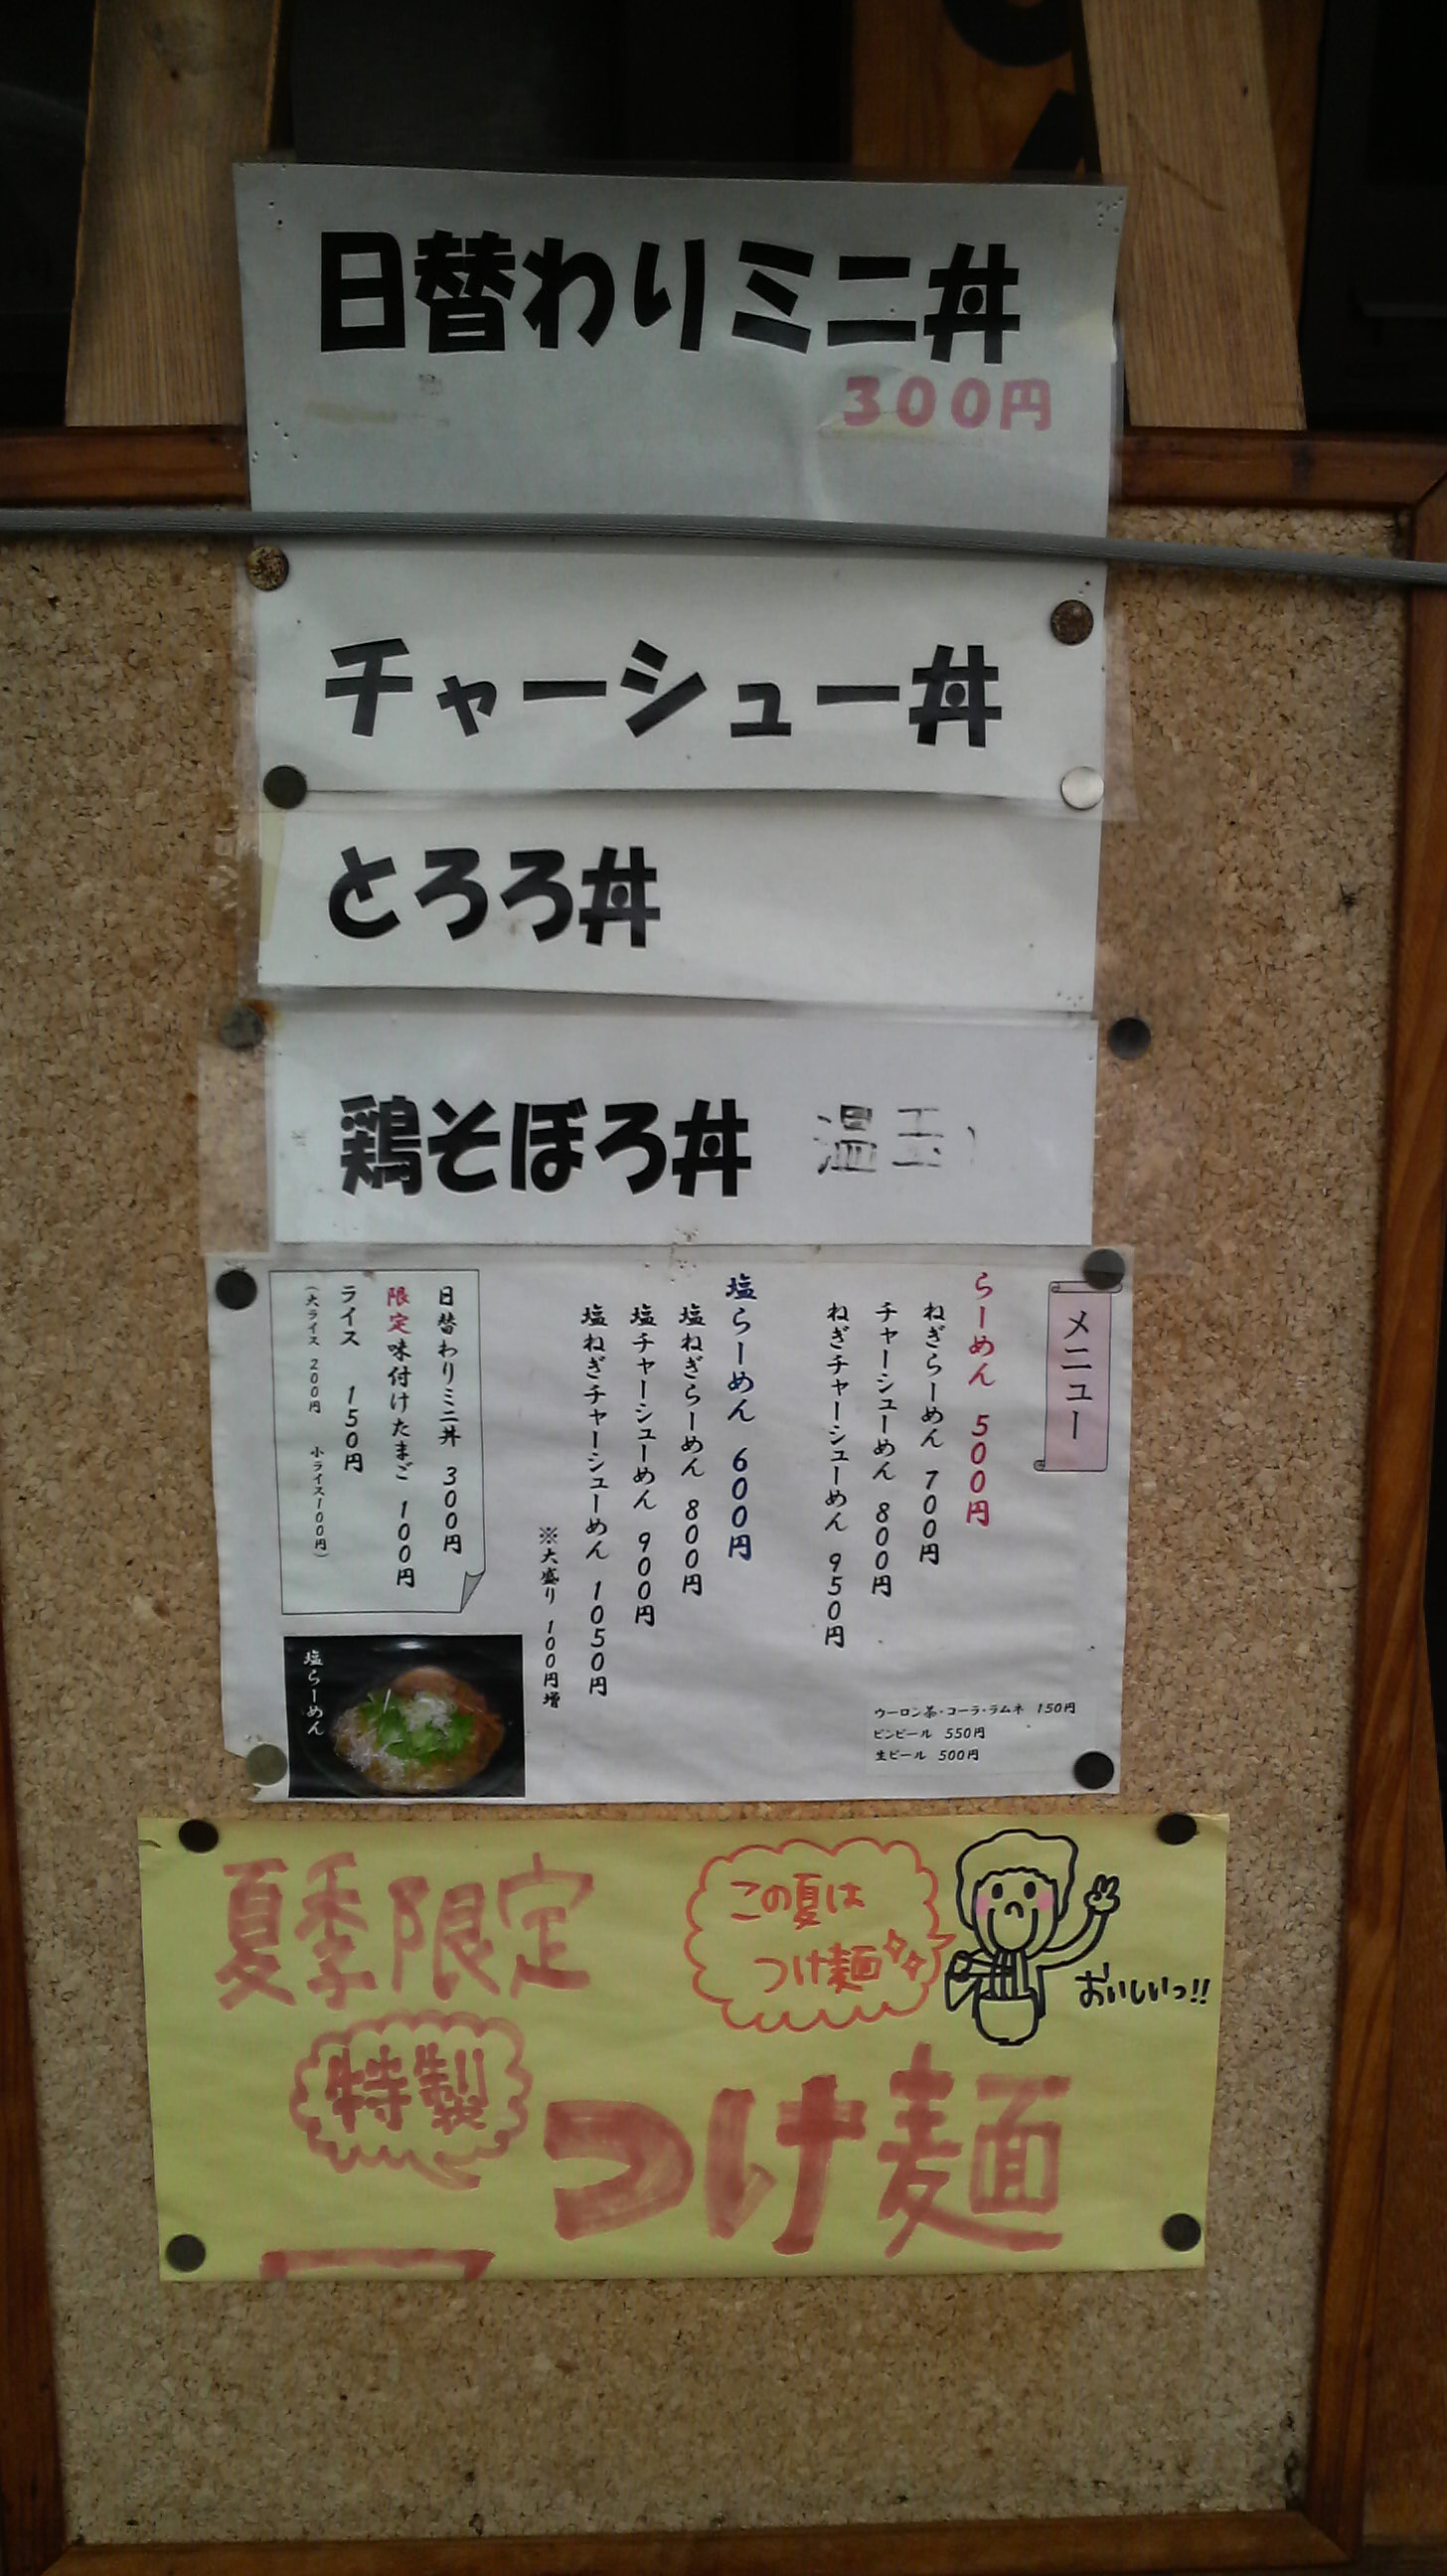 日替わりミニ丼
300円
チャーシュー丼
とろろ丼
鶏そぼろ丼 温玉
メニュー
らーめん 500円
ねぎらーめん 700円
チャーシューめん 800円
ねぎチャーシューめん 950円
塩らーめん 600円
塩ねぎらーめん 800円
塩チャーシューめん 900円
塩ねぎチャーシューめん 1050円
※大盛り 100円増
日替わりミニ丼 300円
限定味付けたまご 100円
ライス 150円
(大ライス 200円 小ライス100円)
塩らーめん
ウーロン茶・コーラ・ラムネ 150円
ビンビール 550円
生ビール 500円
夏季限定
この夏は
つけ麺
おいしいっ!!
特製
つけ麺